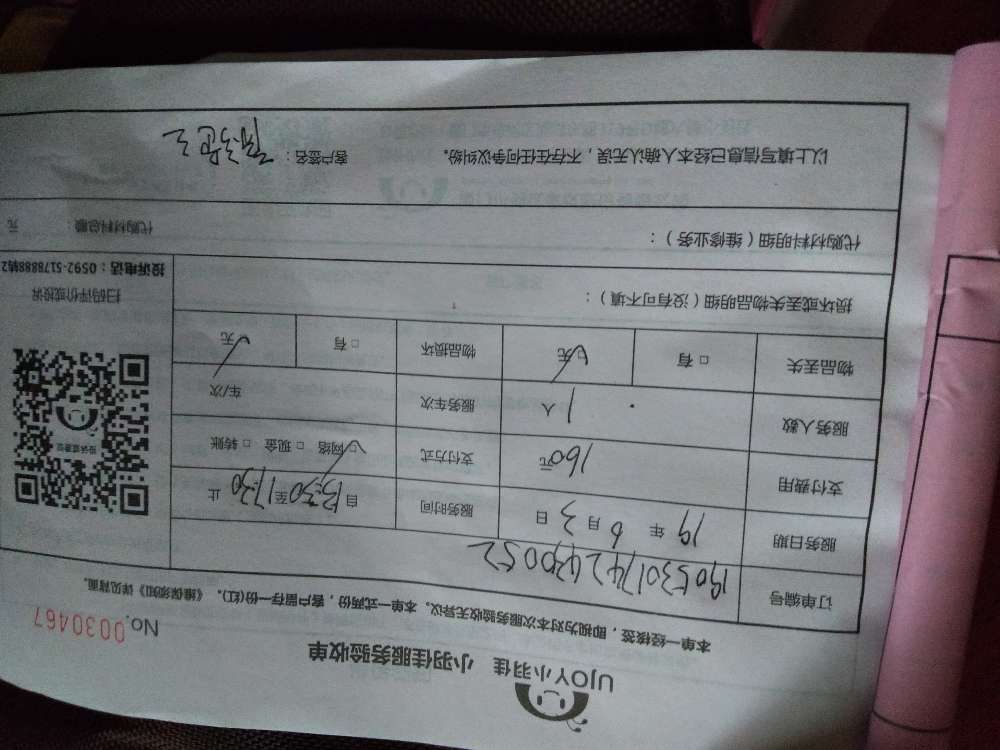 UJOY小羽佳 小羽佳服务验收单
No. 0030467
本单一经核签，即视为对本次服务验收无异议。本单一式两份，客户留存一份(红)。《维保须知》详见背面。
订单编号 1905301742430052
服务日期 19 年 6 月 3 日 服务时间 自 13:30 至 17:30 止
支付费用 160 元 支付方式 ☑ 网络 □ 现金 □ 转账
服务人数 1 人 服务车次 车/次
物品丢失 □ 有 ☑ 无 物品损坏 □ 有 ☑ 无
损坏或丢失物品明细（没有可不填）：
代购材料明细（维修业务）： 代购材料总额： 元
以上填写信息已经本人确认无误，不存在任何争议纠纷。 客户签名：
扫码评价或投诉
投诉电话：0592-5178888转2